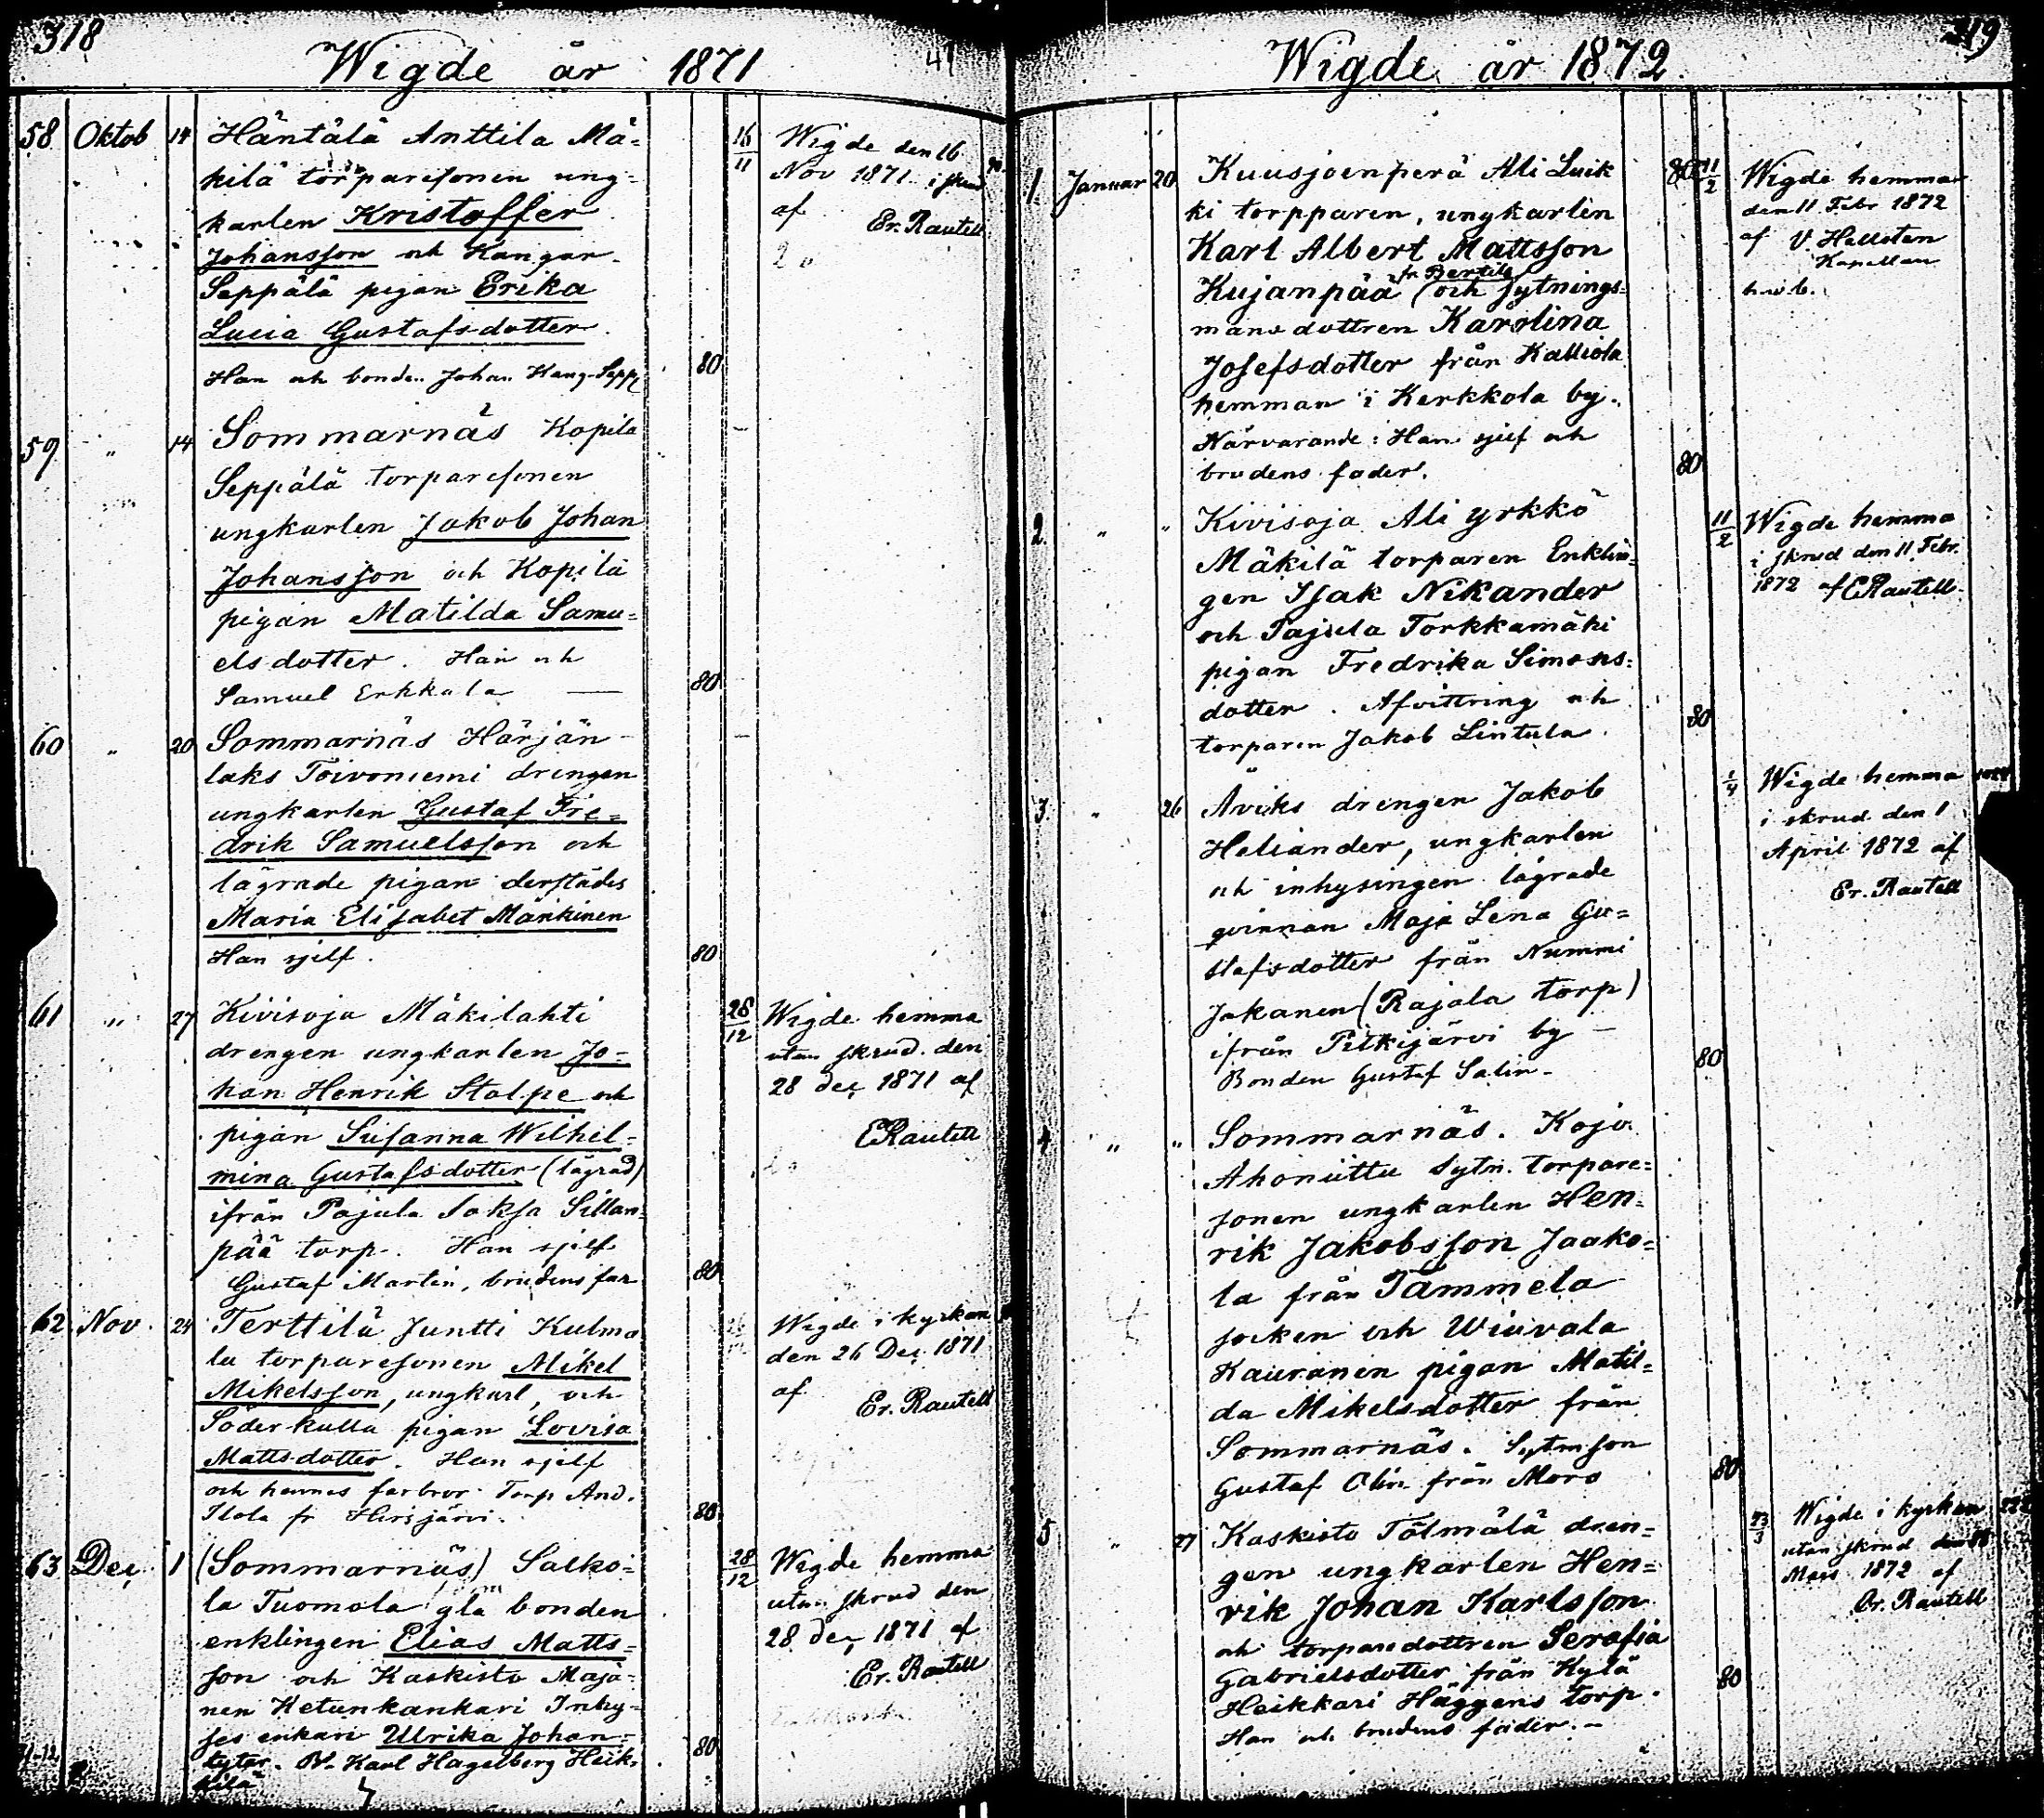 318
Wigde år 1871
41
58 Oktob 14 Häntälä Anttila Mä=
kilä torparesonen ung-
karlen Kristoffer
Johansson och Kangar-
Seppälä pigan Erika
Lucia Gustafsdotter.
Han och bonden Johan Kang-Sepp 80
16/11 Wigde den 16
Nov 1871 i skrud
af Er. Rautell
59 " 14 Sommarnäs Kopila
Seppälä torparesonen
ungkarlen Jakob Johan
Johansson och Kopila
pigan Matilda Samu=
elsdotter. Han och
Samuel Erkkola — 80
60 " 20 Sommarnäs Härjän-
laks Toivoniemi drengen
ungkarlen Gustaf Fre=
drik Samuelsson och
lägrade pigan derstädes
Maria Elisabet Mänkinen
Han sjelf. 80
61 " 27 Kivisoja Mäkilahti
drengen ungkarlen Jo=
han Henrik Stolpe och
pigan Susanna Wilhel-
mina Gustafsdotter (lägrad)
ifrån Pajula Saksa Sillan=
pää torp. Han sjelf
Gustaf Martin, brudens far 80
28/12 Wigde hemma
utan skrud den
28 dec 1871 af
ERautell
62 Nov. 24 Terttilä Juntti Kulma
la torparesonen Mikel
Mikelsson, ungkarl, och
Söderkulla pigan Lovisa
Mattsdotter. Han sjelf
och hennes farbror Torp And.
Ilola fr Hirsjärvi. 80
Wigde i kyrkan
den 26 Dec 1871
af Er. Rautell
63 Dec 1 (Sommarnäs) Salko=
la Tuomola gla bonden
enklingen Elias Matts=
son och Kaskisto Maja-
nen Ketunkankari Inhy-
ses enkan Ulrika Johan=
tytär. Karl Hagelberg Heik-
kilä 80
28/12 Wigde hemma
utan skrud den
28 dec 1871 af
Er. Rautell
319
Wigde år 1872
1. Januar 20 Kuusjoenperä Ali Luik
ki torpparen, ungkarlen
Karl Albert Mattsson
fr Bertilä
Kujanpää (och sytnings=
mans dottren Karolina
Josefsdotter från Kalliola
hemman i Kerkkola by.
Närvarande: Han sjelf och
brudens fader. 80
11/2 Wigde hemma
den 11 Febr 1872
af V. Hellsten
Kapellan
2. " " Kivisoja Ali yrkkö
Mäkilä torparen Enklin=
gen Isak Nikander
och Pajula Torkkamäki
pigan Fredrika Simons=
dotter. Afvittring och
torparen Jakob Lintula. 80
11/2 Wigde hemma
i skrud den 11 Febr.
1872 af ERautell.
3. " 26 Åviks drengen Jakob
Heliander, ungkarlen
och inhysingen lägrade
qvinnan Maja Lena Gu=
stafsdotter från Nummi
Jakanen (Rajala torp)
ifrån Pitkijärvi by -
Bonden Gustaf Salin- 80
1/4 Wigde hemma
i skrud den 1
April 1872 af
Er. Rautell
4 " " Sommarnäs. Kojo
Ahoniittu Sytn. torpare=
sonen ungkarlen Hen=
rik Jakobsson Jaako=
la från Tammela
socken och Wiuvala
Kauranen pigan Matil=
da Mikelsdotter från
Sommarnäs. Sytnson
Gustaf Olin från Moro 80
5 " 27 Kaskisto Tölmälä dren=
gen ungkarlen Hen=
rik Johan Karlsson
och torparedottren Serafia
Gabrielsdotter från Kylä
Heikkari Häggens torp.
Han och brudens fader. - 80
Wigde i kyrkan
utan skrud
Mars 1872 af
Er. Rautell